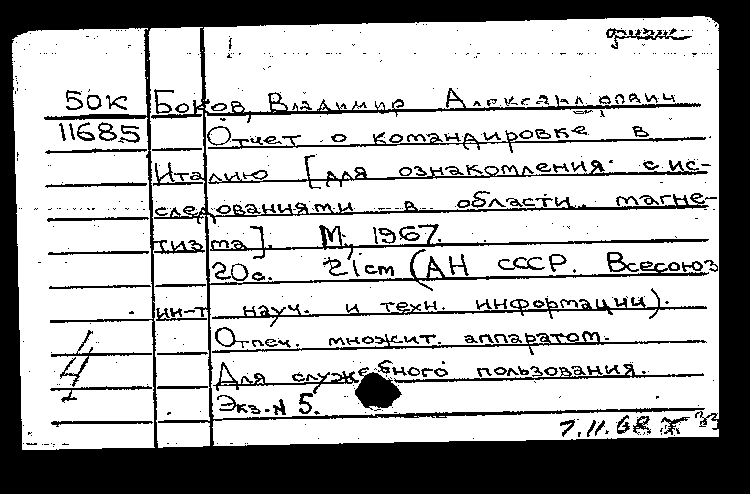 50к Боков, Владимир Александрович
11685 Отчет о командировке в
Италию [для ознакомления с ис-
следованиями в области магне-
тизма]. М., 1967.
20с. 21cm (АН СССР. Всесоюз
ин-т науч. и техн. информации).
Отпеч. множит. аппаратом.
Для служебного пользования.
Экз. № 5.
7.11.68